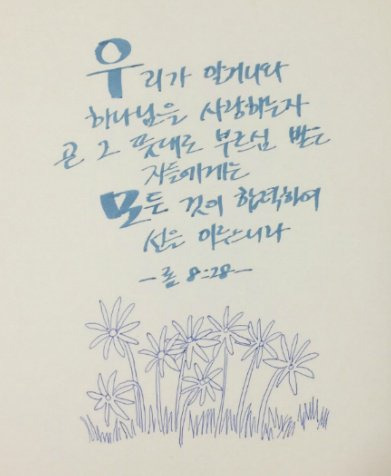 우리가 알거니와
하나님을 사랑하는자
곧 그 뜻대로 부르심 받는
자들에게는
모든 것이 합력하여
선을 이루느니라
-롬 8:28-